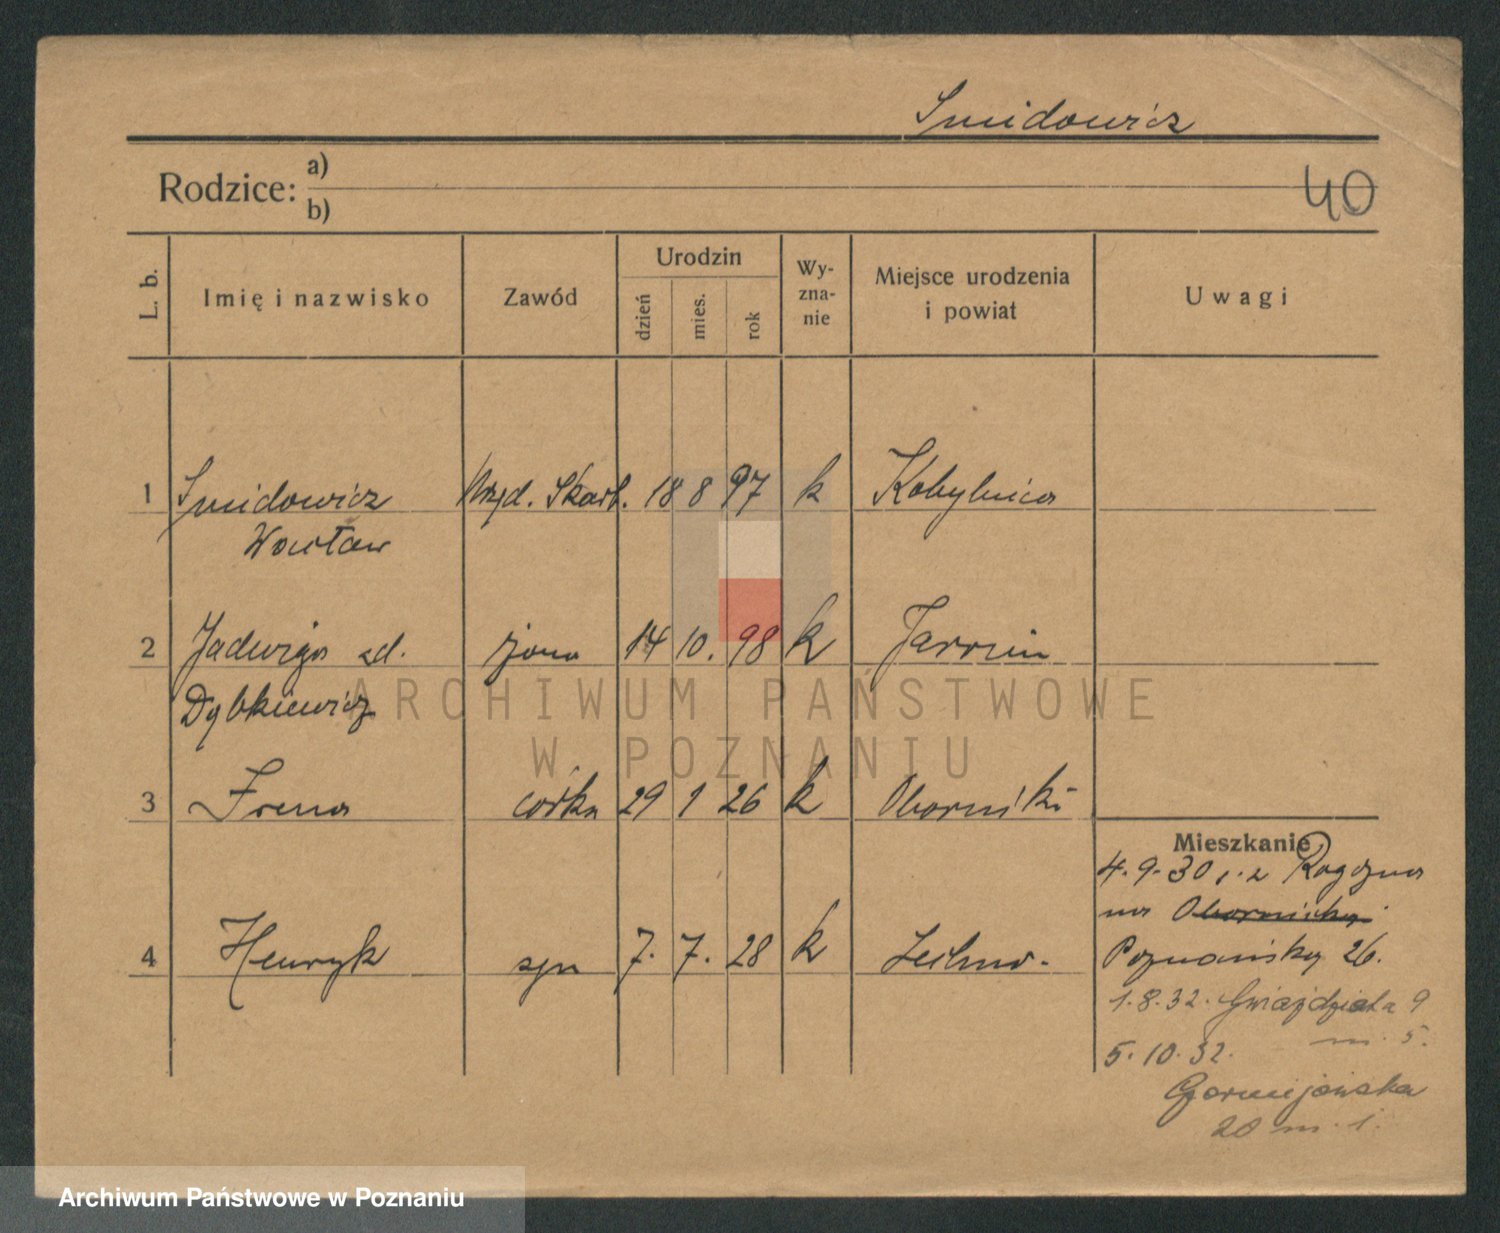 Smidowicz
Rodzice: a)
b)
40
L. b. Imię i nazwisko Zawód Urodzin dzień mies. rok Wy-zna-nie Miejsce urodzenia i powiat Uwagi
1 Smidowicz Urzęd. Skarb. 18 8 97 k Kobylnica
Wacław
2 Jadwiga zd. żona 14 10. 98 k
Dąbkiewicz
3 Irena córka 29 1 26 k Oborniki
4 Henryk syn 7. 7. 28 k
Mieszkanie
4.9.30 r. z Rogozna
na Obornicką
Poznańską 26.
1.8.32. 9
m. 5.
5.10.32.
20 m. 1.
ARCHIWUM PAŃSTWOWE
W POZNANIU
Archiwum Państwowe w Poznaniu